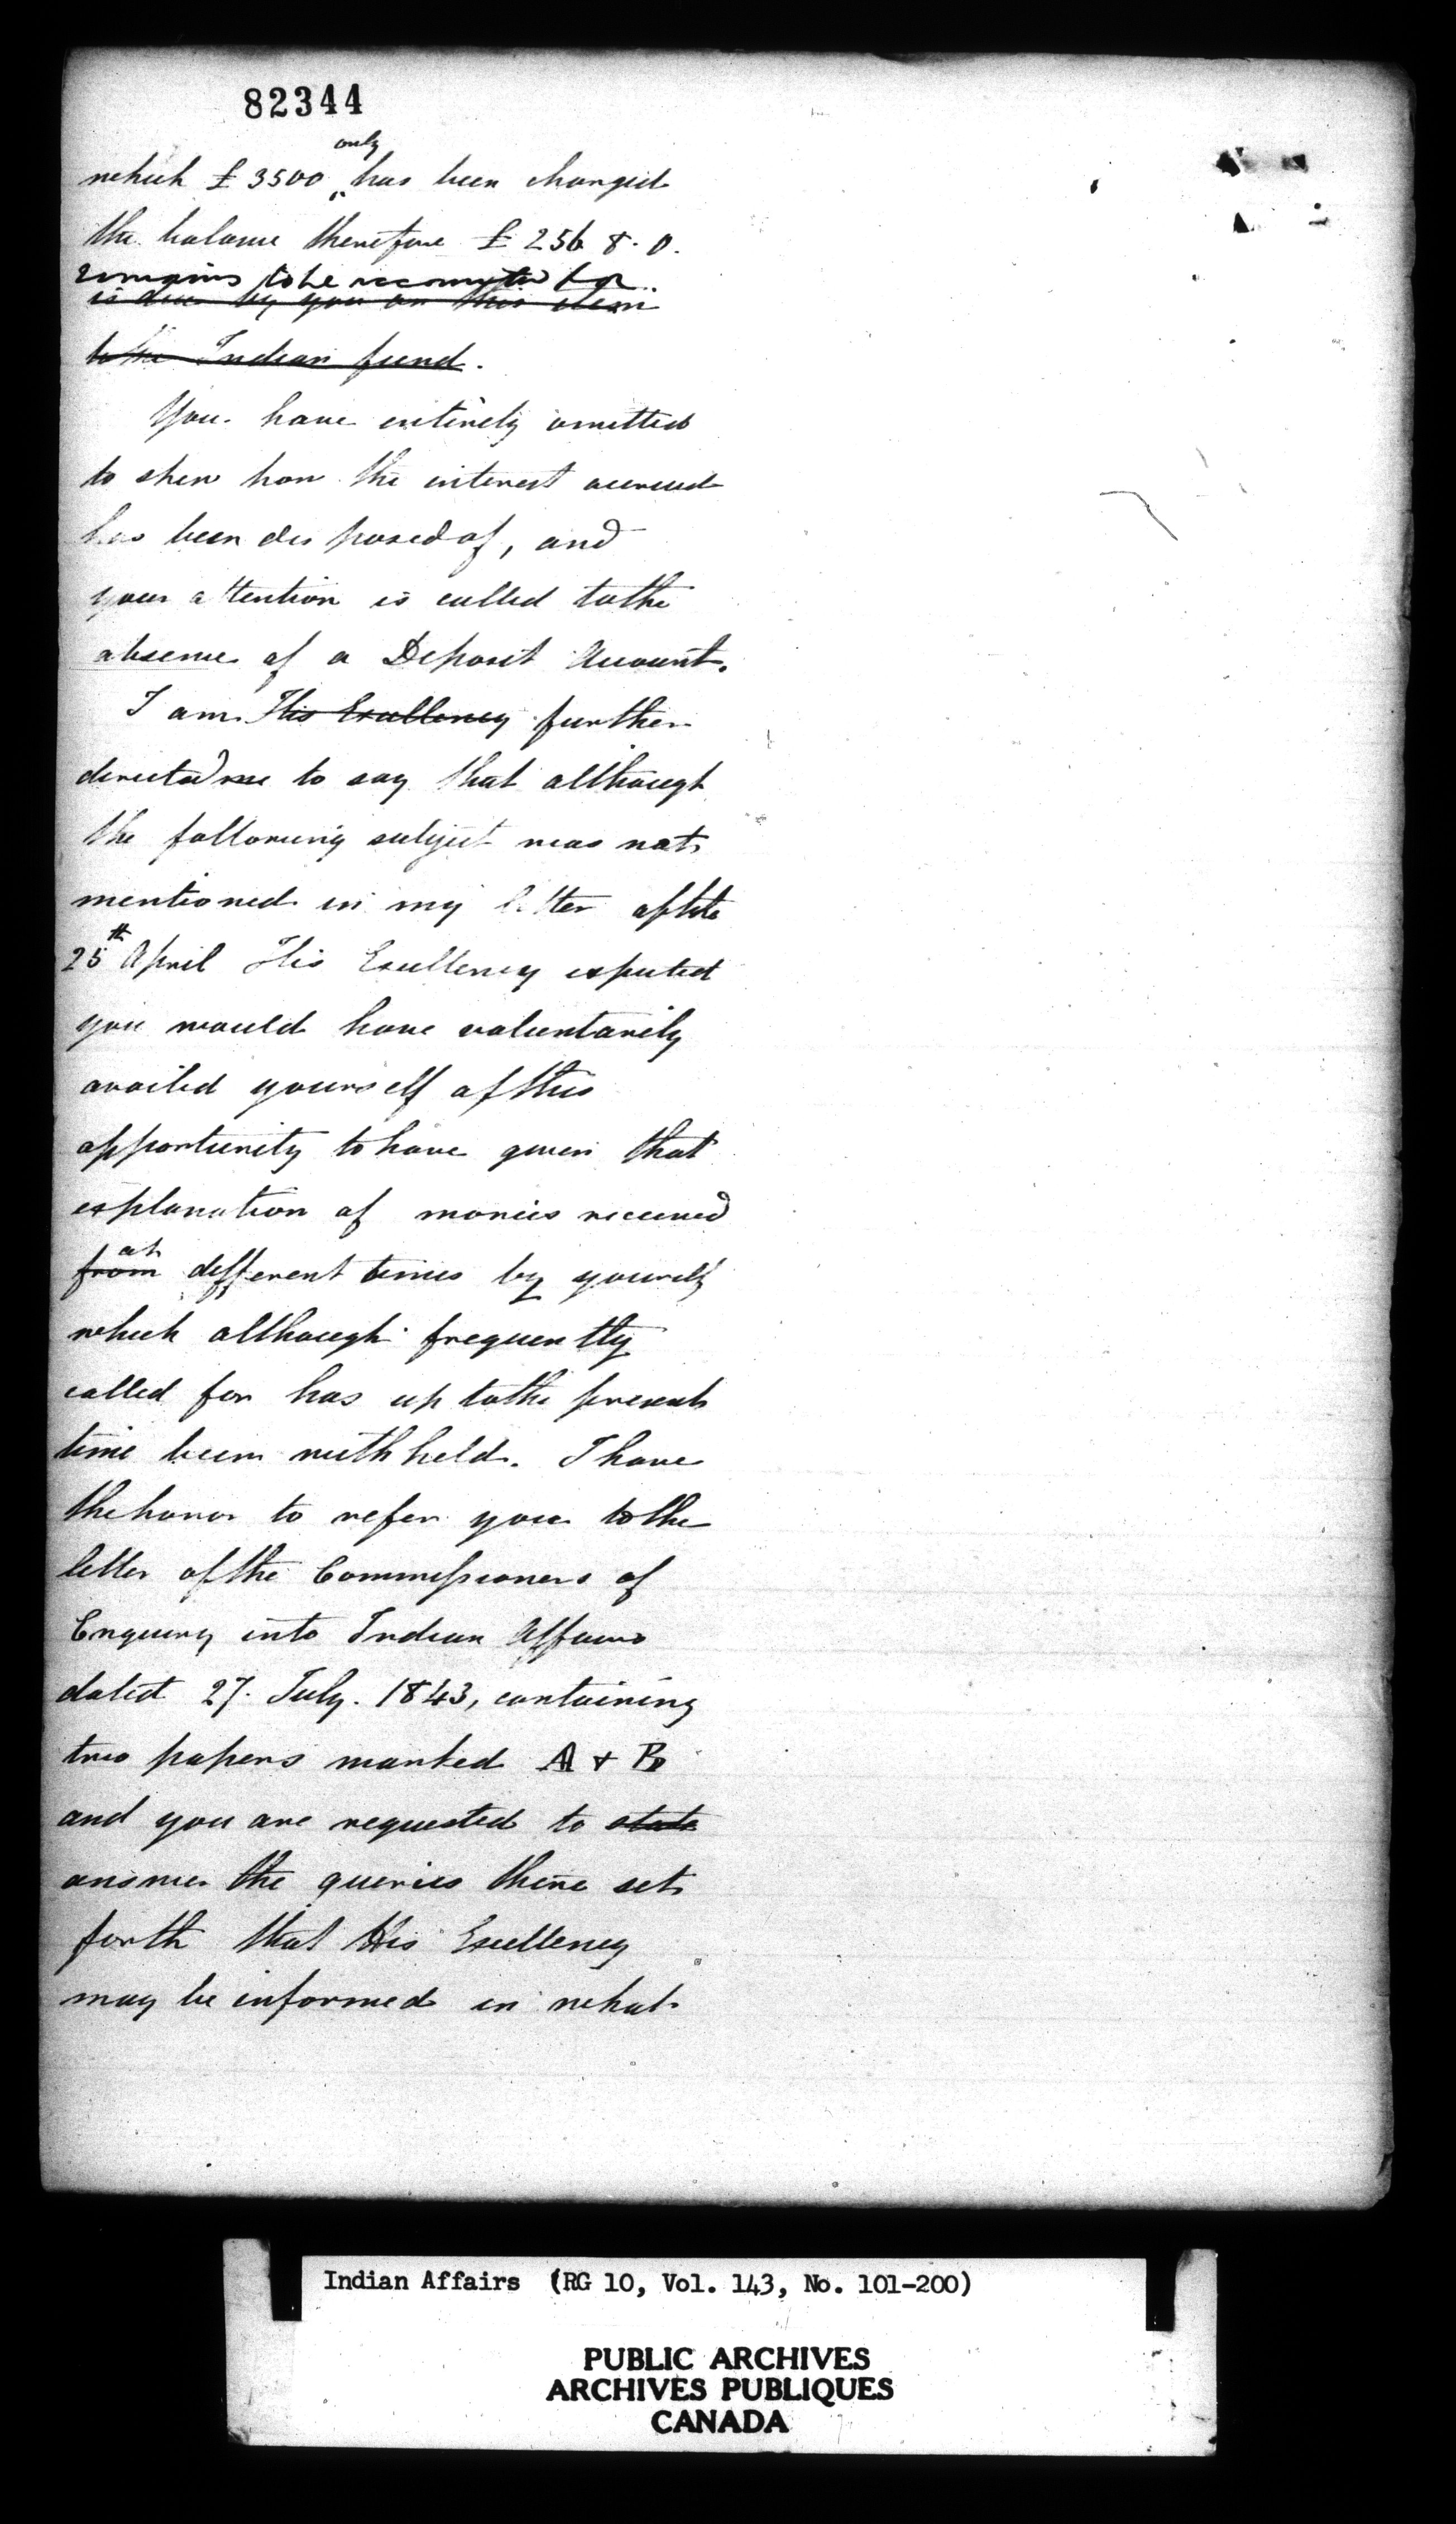 82344
only
which £ 3500 ‸ has been charged
the balance therefore £ 256 8. 0.
remains to be accounted for..
is due by you on this item
to the Indian fund.
You have entirely omitted
to shew how the interest accrued
has been disposed of, and
your attention is called to the
absence of a Deposit Account.
I am His Excellency further
directed me to say that although
the following subject was not
mentioned in my letter of the
25th April His Excellency expected
you would have voluntarily
availed yourself of this
opportunity to have given that
explanation of monies received
at
from different times by yourself
which although frequently
called for has up to the present
time been withheld. I have
the honor to refer you to the
letter of the Commissioners of
Enquiry into Indian Affairs
dated 27. July. 1843, containing
two papers marked A + B
and you are requested to state
answer the queries there set
forth that His Excellency
may be informed in what
Indian Affairs (RG 10, Vol. 143, No. 101-200)
PUBLIC ARCHIVES
ARCHIVES PUBLIQUES
CANADA